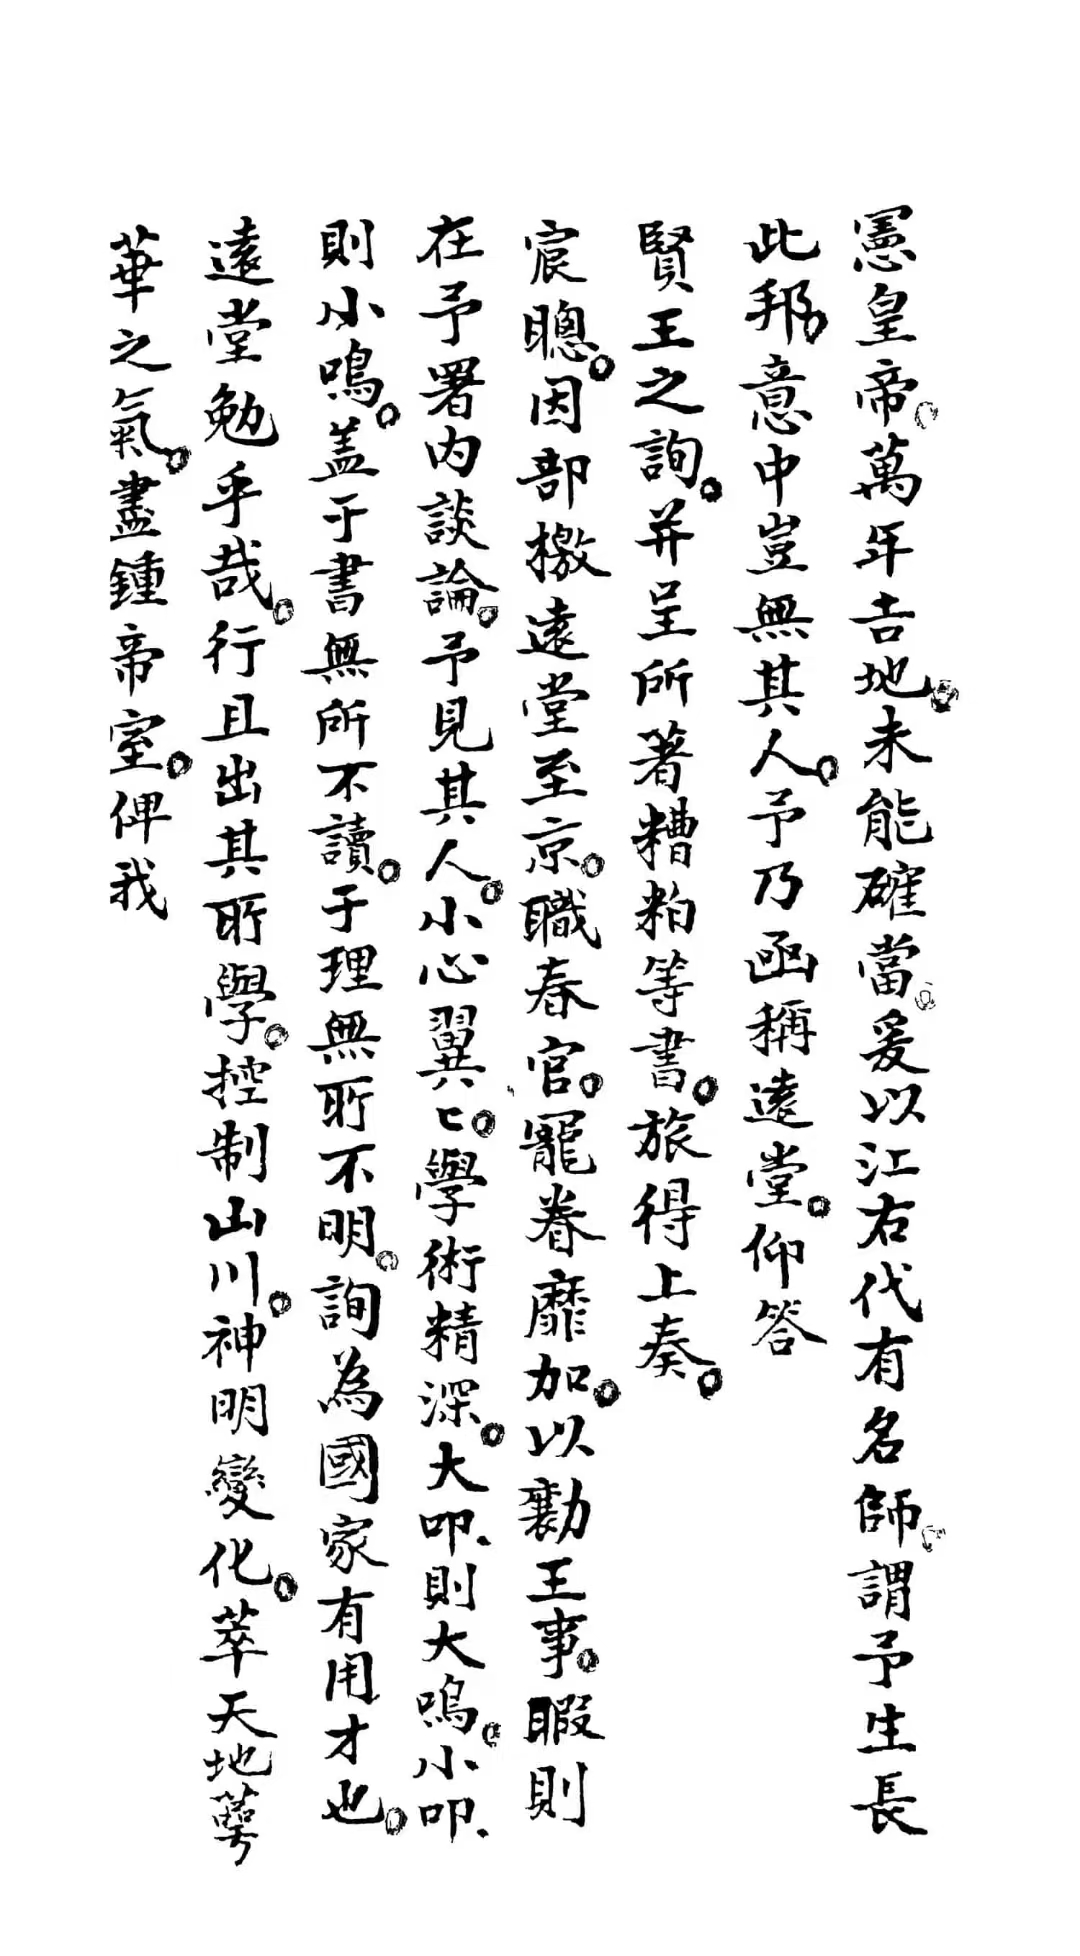 憲皇帝。萬年吉地。未能確當。爰以江右代有名師。謂予生長
此邦意中豈無其人。予乃函稱遠堂。仰答
賢王之詢。并呈所著糟粕等書。旅得上奏。
宸聰。因部檄遠堂至京。職春官。寵眷靡加。以勷王事。暇則
在予署内談論。予見其人。小心翼〻。學術精深。大叩、則大鳴。小叩、
則小鳴。盖于書無所不讀。于理無所不明。詢為國家有用才也。
遠堂勉乎哉。行且出其所學。控制山川。神明變化。萃天地萼
華之氣。盡鍾帝室。俾我